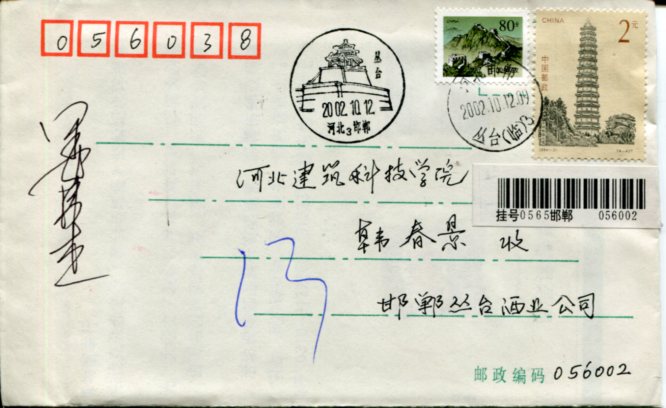 056038
80分
CHINA
2元
中国邮政
丛台
2002.10.12
河北3邯郸
2002.10.12.09
丛台(临)3
河北建筑科技学院
挂号0565邯郸 056002
韩春景 收
邯郸丛台酒业公司
邮政编码 056002